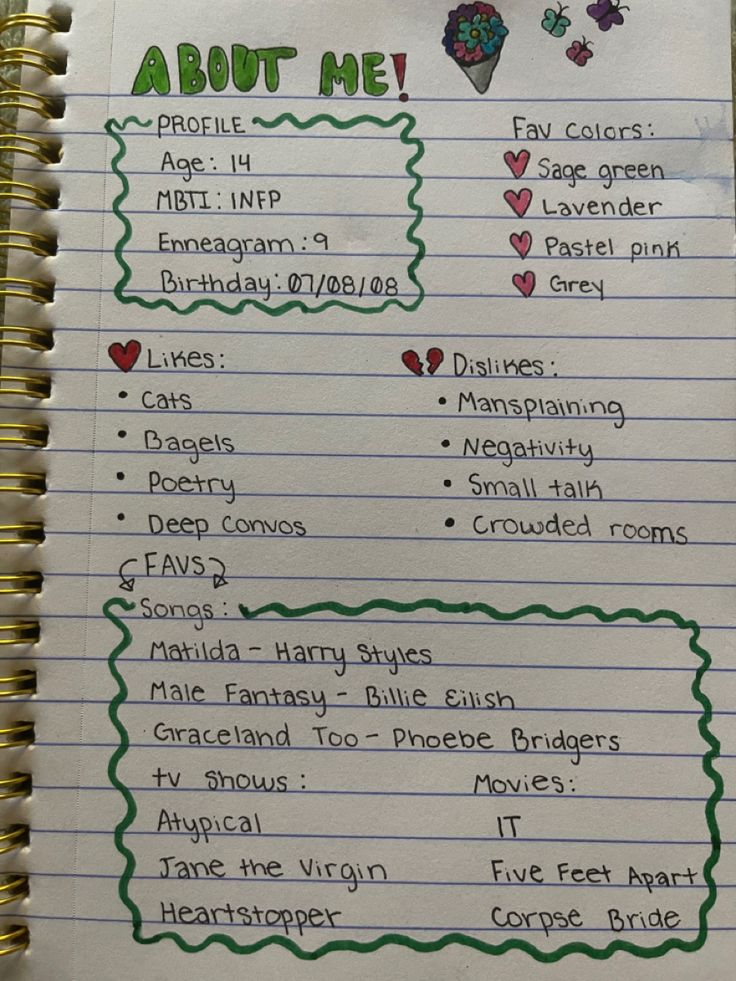 ABOUT ME!
PROFILE
Age: 14
MBTI: INFP
Enneagram: 9
Birthday: 07/08/08
Fav colors:
Sage green
Lavender
Pastel pink
Grey
Likes:
• Cats
• Bagels
• Poetry
• Deep convos
Dislikes:
• Mansplaining
• Negativity
• Small talk
• Crowded rooms
FAVS
Songs:
Matilda - Harry Styles
Male Fantasy - Billie Eilish
Graceland Too - Phoebe Bridgers
tv shows:
Atypical
Jane the Virgin
Heartstopper
Movies:
IT
Five Feet Apart
Corpse Bride